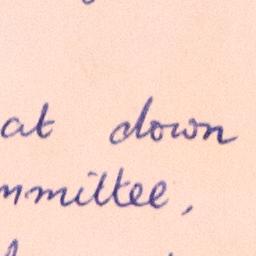 at down
mmittee,